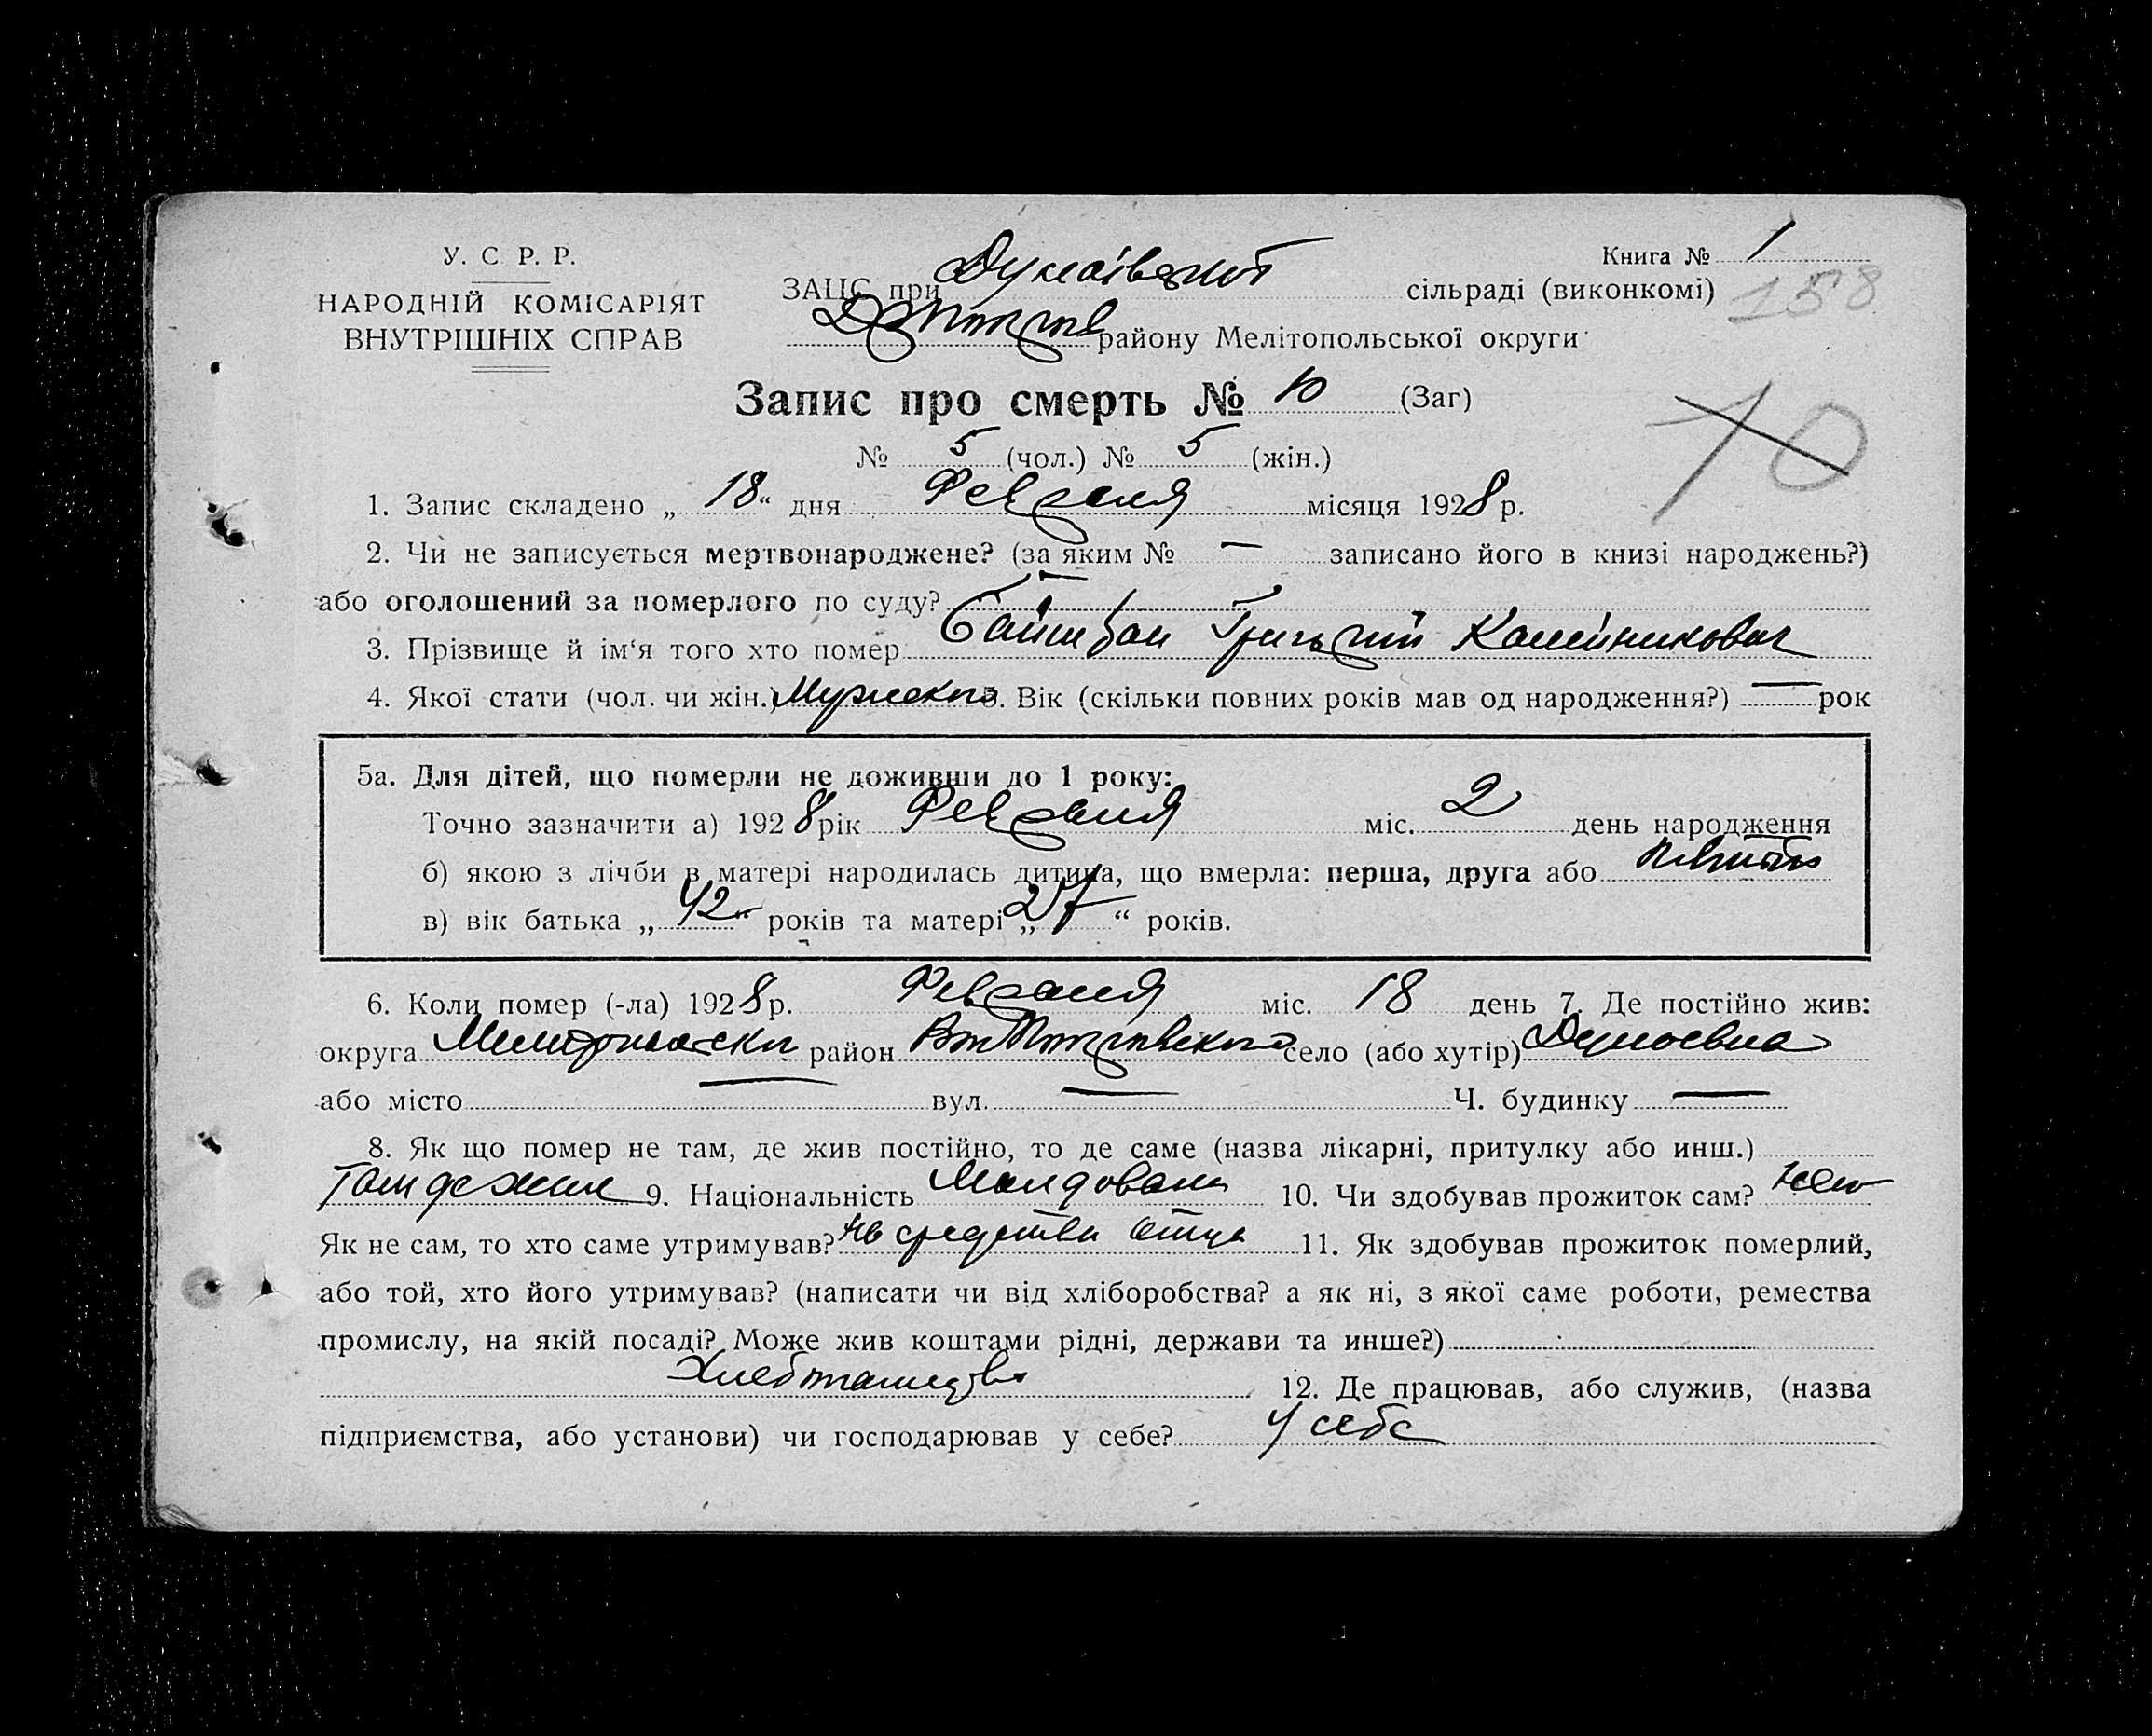 У. С. Р. Р.
НАРОДНІЙ КОМІСАРІЯТ
ВНУТРІШНІХ СПРАВ
Книга № 1
158
ЗАЦС при сільраді (виконкомі)
району Мелітопольської округи
Запис про смерть № 10 (Заг)
10
№ 5 (чол.) № 5 (жін.)
1. Запис складено „ 18 “ дня Февраля місяця 1928 р.
2. Чи не записується мертвонароджене? (за яким № — записано його в книзі народжень?)
або оголошений за померлого по суду? —
3. Прізвище й ім‘я того хто помер
4. Якої стати (чол. чи жін.) Мужского 5. Вік (скільки повних років мав од народження?) — рок
5а. Для дітей, що померли не доживши до 1 року:
Точно зазначити а) 1928 рік Февраля міс. 2 день народження
б) якою з лічби в матері народилась дитина, що вмерла: перша, друга або
в) вік батька „ 42 “ років та матері „ 27 “ років.
6. Коли помер (-ла) 1928 р. Февраля міс. 18 день 7. Де постійно жив:
округа район село (або хутір)
або місто — вул. — Ч. будинку —
8. Як що помер не там, де жив постійно, то де саме (назва лікарні, притулку або инш.)
Там де жил 9. Національність Молдован 10. Чи здобував прожиток сам?
Як не сам, то хто саме утримував? средства отца 11. Як здобував прожиток померлий,
або той, хто його утримував? (написати чи від хліборобства? а як ні, з якої саме роботи, ремества
промислу, на якій посаді? Може жив коштами рідні, держави та инше?)
12. Де працював, або служив, (назва
підприємства, або установи) чи господарював у себе? у себе